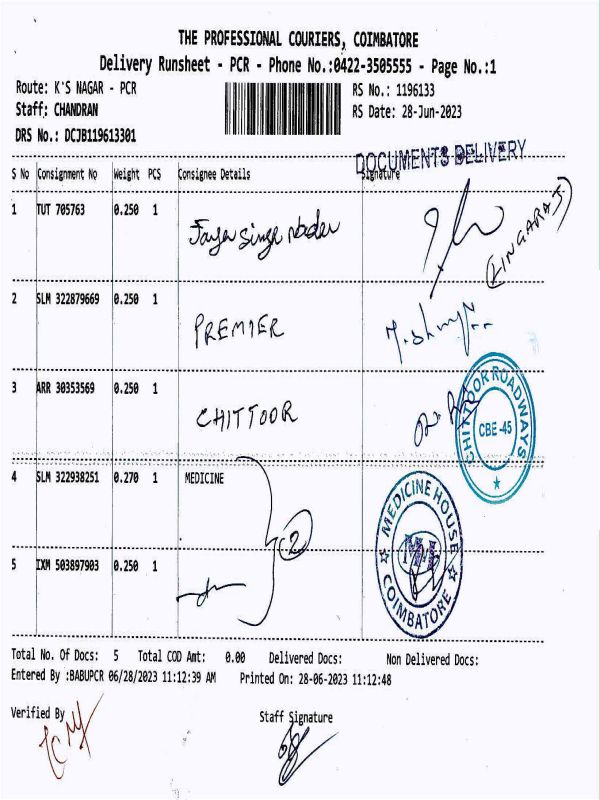 THE PROFESSIONAL COURIERS, COIMBATORE
Delivery Runsheet - PCR - Phone No.:0422-3505555 - Page No.:1
Route: K'S NAGAR - PCR
RS No.: 1196133
Staff: CHANDRAN
RS Date: 28-Jun-2023
DRS No.: DCJB119613301
DOCUMENTS DELIVERY
S No Consignment No Weight PCS Consignee Details Signature
1 TUT 705763 0.250 1
(LINGARAJ)
2 SLM 322879669 0.250 1 PREMIER
3 ARR 30353569 0.250 1 CHITTOOR
CHITTOOR ROADWAYS
CBE-45
4 SLM 322938251 0.270 1 MEDICINE
2
MEDICINE HOUSE
COIMBATORE
5 IXM 503897903 0.250 1
Total No. Of Docs: 5 Total COD Amt: 0.00 Delivered Docs: Non Delivered Docs:
Entered By :BABUPCR 06/28/2023 11:12:39 AM Printed On: 28-06-2023 11:12:48
Verified By
Staff Signature